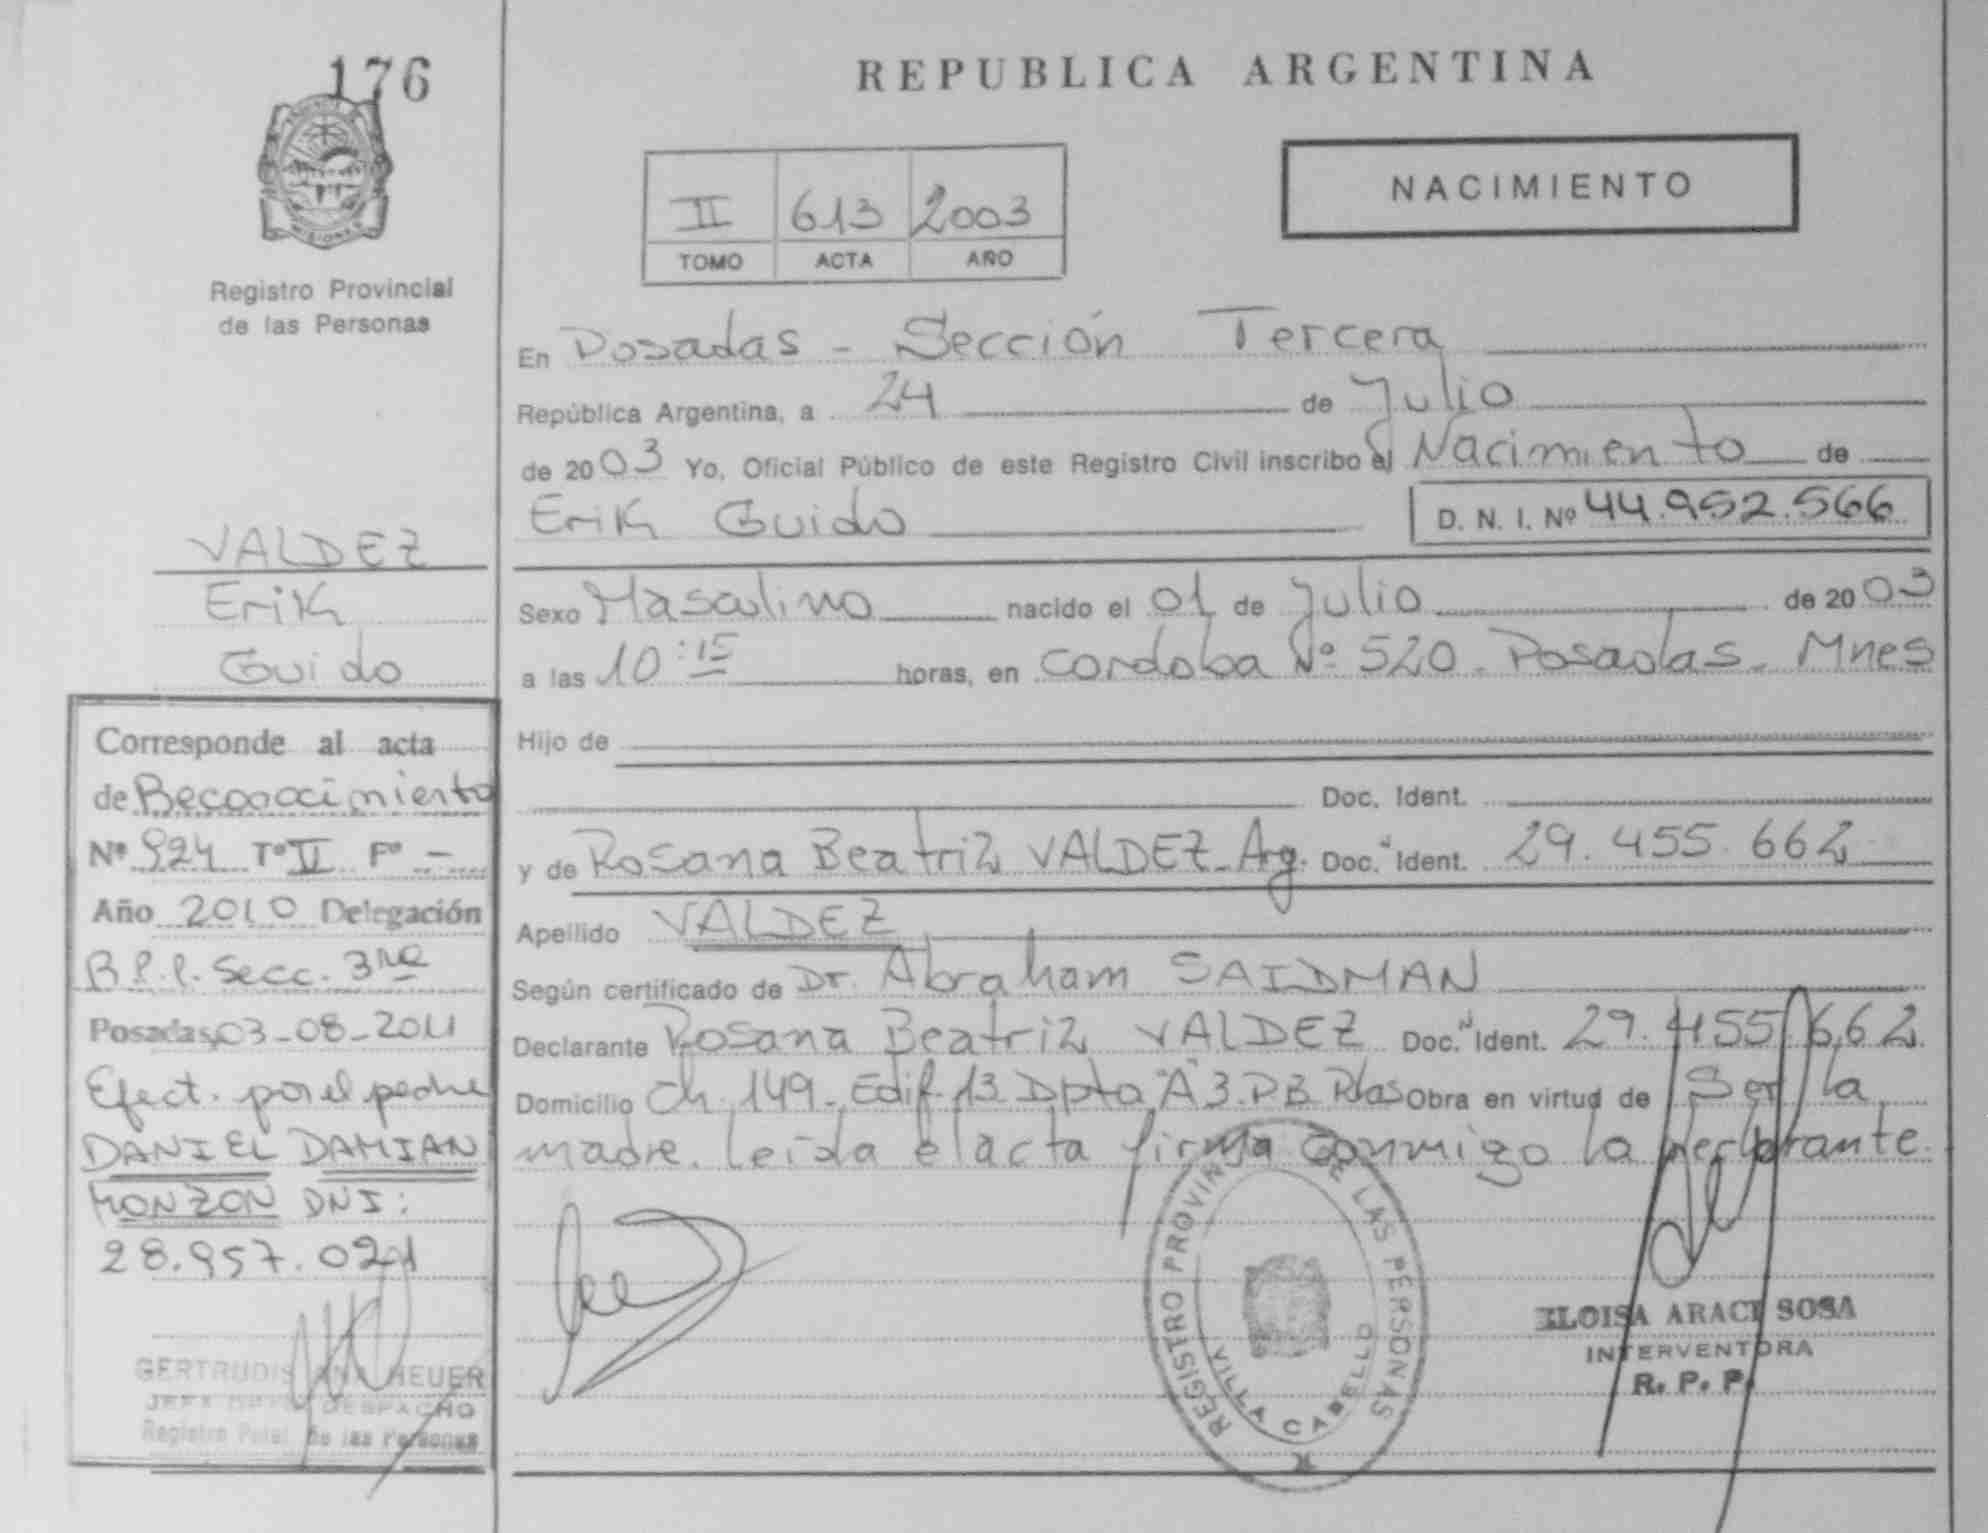 176
MISIONES
Registro Provincial
de las Personas
REPUBLICA ARGENTINA
NACIMIENTO
II 613 2003
TOMO ACTA AÑO
En Posadas - Sección Tercera
República Argentina, a 24 de Julio
de 2003 Yo, Oficial Público de este Registro Civil inscribo el Nacimiento de
Erik Guido
D. N. I. Nº 44.952.566
Sexo Masculino nacido el 01 de Julio de 2003
a las 10:15 horas, en Cordoba Nº 520 - Posadas - Mnes
Hijo de
Doc. Ident.
y de Rosana Beatriz VALDEZ - Arg. Doc. Ident. 29.455.662
Apellido VALDEZ
Según certificado de Dr. Abraham SAIDMAN
Declarante Rosana Beatriz VALDEZ Doc. Ident. 29.455.662
Domicilio Ch. 149 - Edif. 13 Dpto "A" 3. P.B. Pdas Obra en virtud de Ser la
madre. leída el acta firma conmigo la declarante.
VALDEZ
Erik
Guido
Corresponde al acta
de Reconocimiento
Nº 924 Tº II Fº -
Año 2010 Delegación
R.P.P. Secc. 3ra
Posadas, 03-08-2011
Efect. por el padre
DANIEL DAMIAN
MONZON DNI:
28.957.021
GERTRUDIS ANA HEUER
JEFA DPTO DESPACHO
Registro Pcial. de las Personas
REGISTRO PROVINCIAL DE LAS PERSONAS
VILLA CABELLO
ELOISA ARACI SOSA
INTERVENTORA
R. P. P.